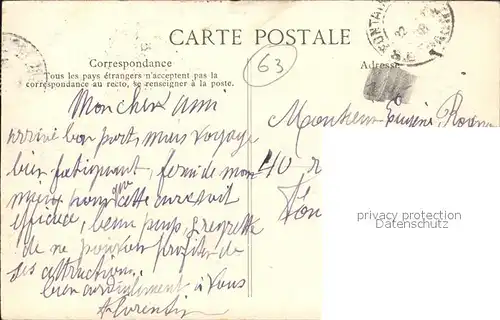 CARTE POSTALE
63
Correspondance
Adresse
Tous les pays étrangers n'acceptent pas la
correspondance au recto, se renseigner à la poste.
Mon cher ami
arrivé bon port, mais voyage
bien fatiguant, ferai de mon
mieux pour que cette cure soit
efficace, beau temps, je regrette
de ne pouvoir profiter de
ses attractions.
bien cordialement à vous
Monsieur Eugène
40 r
privacy protection
Datenschutz